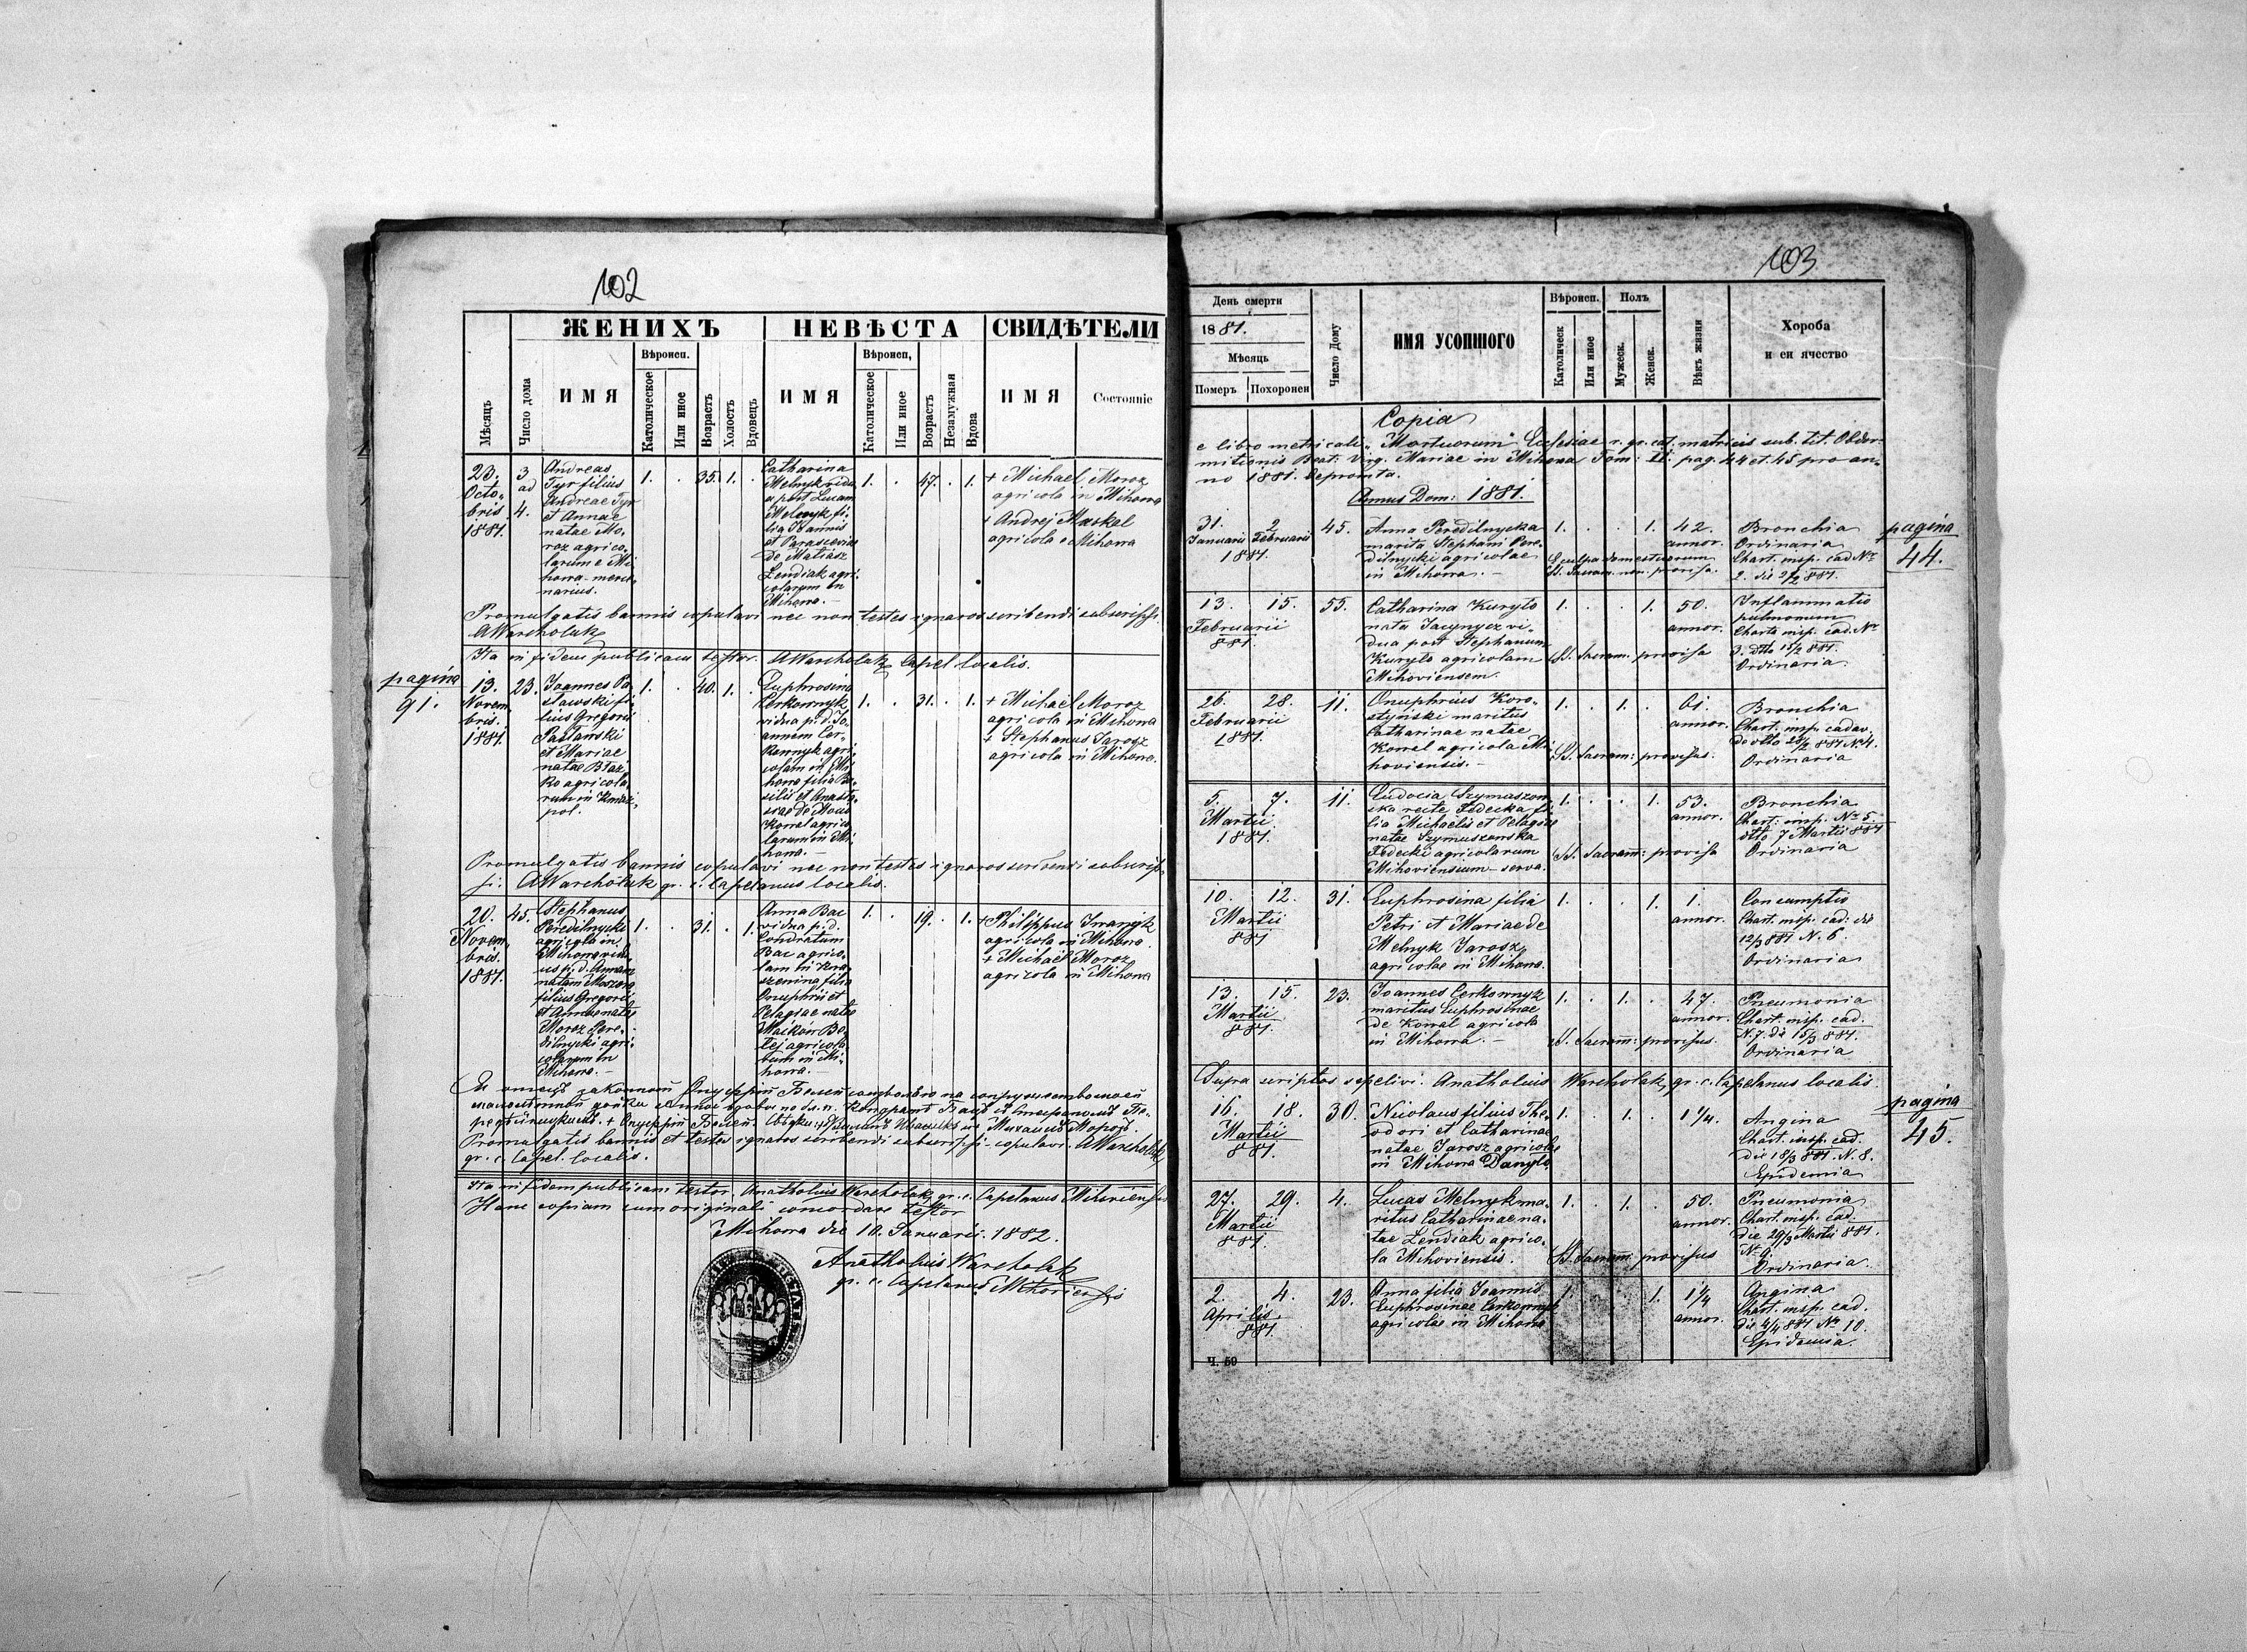 102
ЖЕНИХЪ
НЕВѢСТА
СВИДѢТЕЛИ
Мѣсяць
Число дома
ИМЯ
Вѣроисп.
Католическое
Или иное
Возрастъ
Холостъ
Вдовецъ
ИМЯ
Вѣроисп,
Католическое
Или иное
Возрастъ
Незамужная
Вдова
ИМЯ
Состояніе
23.
Octo„
bris.
1881.
3
ad
4.
Andreas
Tyr filius
Andreae Tyr
et Annae
natae Mo„
roz agrico„
larum e Mi
howa - merce
narius.
1. . 35. 1. .
Catharina
Melnyk vidu
a post Lucam
Melnyk fi„
lia Joannis
et Parasceviae
de Matiasz
Lendiak agri„
colarum in
Mihowa. —
1. . 47. . 1.
+ Michael Moroz
agricola in Mihowa
+ Andrej Maskal
agricola e Mihowa
Promulgatis bannis copulavi nec non testes ignaros scribendi subscripsi.
AWarcholak
Ita in fidem publicam testor. AWarcholak Capel localis.
pagina
91.
13.
Novem
bris.
1881.
23.
Joannes Pa
stawski fi„
lius Gregorii
Pastawski
et Mariae
natae Błaż
ko agricola„
rum in
pol.
1. . 40. 1. .
Euphrosina
Cerkownyk
vidua p. d. Jo„
annem Cer„
kownyk agri„
colam in Mi
howa filia Ba„
silii et Anasta„
siae de
Kowal agrico
larum in Mi„
howa. —
1. . 31. . 1.
+ Michael Moroz
agricola in Mihowa
+ Stephanus Jarosz
agricola in Mihowa.
Promulgatis bannis copulavi nec non testes ignaros scribendi subscrip„
si: AWarcholak gr. c. Capelanus localis.
20.
Novem„
bris.
1881.
45.
Stephanus
Peredilnycki
agricola in
Mihowa vidu„
us p. d. Annam
natam
filius Gregorii
et Annae natae
Moroz Pere„
dilnycki agri„
colarum in
Mihowa. —
1. . 31. . 1.
Anna Bac
vidua p. d.
Condratum
Bac agrico„
lam in
filia
Onuphrii et
Pelagiae natae
agricola„
rum in Mi„
howa. —
1. . 19. . 1.
+ Philippus Iwanyk
agricola in Mihowa.
+ Michael Moroz
agricola in Mihowa
Promulgatis bannis et testes ignaros scribendi subscripsi - copulavi. AWarcholak
gr. c. Capel. localis.
Ita in fidem publicam testor. Anatholius Warcholak gr. c. Capelanus Mihoviensis
Hanc copiam cum originali concordare testor
Mihowa die 10. Januarii. 1882.
Anatholius Warcholak
gr. c. Capelanus Mihoviensis
103
День смерти
1881.
Мѣсяць
Померъ
Похоронен
Число Дому
ИМЯ УСОПШОГО
Вѣроисп.
Католическ
Или иное
Полъ
Мужеск.
Женск.
Вѣкъ жизни
Хороба
и еи ячество
Copia
e libro metricali „Mortuorum" Ecclesiae r. gr. cat. matricis sub. tit. Obdor„
mitionis Beat: Virg. Mariae in Mihowa Tom: II. pag. 44 et. 45 pro an„
no 1881. deprompta.
Annus Dom: 1881.
31.
Januarii
1881.
2
Februarii
45.
Anna Peredilnycka
marita Stephani Pere„
dilnycki agricolae
in Mihowa. —
1. . . 1.
E culpa domesticorum
SS. Sacram. non provisa.
42.
annor.
Bronchia
Ordinaria
Chart. insp. cad. Nr
2. die 2/2 881.
pagina
44.
13. 15.
Februarii
881.
55.
Catharina Kuryło
nata Jacynycz vi„
dua post Stephanum
Kuryło agricolam
Mihoviensem.
1. . . 1.
SS. Sacram: provisa
50.
annor.
Inflammatio
pulmonum
Charta insp. cad. Nr
3. dtto 15/2 881.
Ordinaria.
26. 28.
Februarii
1881.
11.
Onuphrius Koro„
styński maritus
Catharinae natae
Kowal agricola Mi
hoviensis. —
1. . 1. .
SS. Sacram: provisus.
61.
annor.
Bronchia
Chart. insp. cadav.
de dtto 28/2 881 N. 4.
Ordinaria
5. 7.
Martii
1881.
11.
Eudocia Szymuszow„
ska recte Fedecka fi„
lia Michaelis et Pelagiae
natae Szymuszowska
Fedecki agricolarum
Mihoviensium - serva.
1. . . 1.
SS. Sacram: provisa
53.
annor.
Bronchia
Chart. insp. Nr 5.
dtto 7 Martii 881
Ordinaria
10. 12.
Martii
881
31.
Euphrosina filia
Petri et Mariae de
Melnyk Jarosz
agricolae in Mihowa.
1. . . 1.
1.
annor.
Consumptio
Chart. insp. cad: die
12/3 881 N. 6.
Ordinaria
13. 15.
Martii
881.
23.
Joannes Cerkownyk
maritus Euphrosinae
de Kowal agricola
in Mihowa. —
1. . 1. .
SS. Sacram: provisus.
47.
annor.
Pneumonia
Chart. insp. cad.
N. 7. die 15/3 881.
Ordinaria
Supra scriptos sepelivi. Anatholius Warcholak, gr. c. Capelanus localis.
16. 18.
Martii
881.
30.
Nicolaus filius The„
odori et Catharinae
natae Jarosz agricolae
in Mihowa Danyło
1. . 1. .
1 1/4.
Angina
Chart. insp. cad.
die 18/3 881. N. 8.
Epidemia
pagina
45.
27. 29.
Martii
881.
4.
Lucas Melnyk ma„
ritus Catharinae na„
tae Lendiak agrico„
la Mihoviensis.
1. . 1. .
SS. Sacram: provisus
50.
annor.
Pneumonia
Chart. insp. cad.
die 29/3 Martii 881.
N. 9.
Ordinaria.
2. 4.
Aprilis.
881.
23.
Anna filia Joannis
Euphrosinae Cerkownyk
agricolae in Mihowa
1. . . 1.
1 1/4
annor.
Angina
Chart. insp. cad.
die 4/4 881 Nr 10.
Epidemia.
Ч. 50